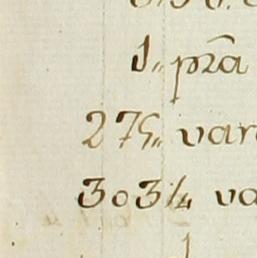 1,, pza
275,, var
303¼,, va